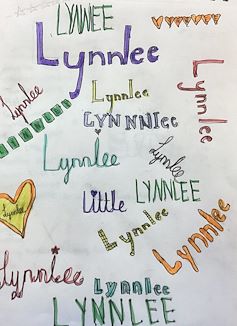 LYNNLEE
Lynnlee
Lynnlee
Lynnlee
Lynnlee
LYNNlee
Lynnlee
Lynnlee
Lynnlee
LYNNLEE
Little
Lynnlee
Lynnlee
Lynnlee
Lynnlee
LYNNLEE